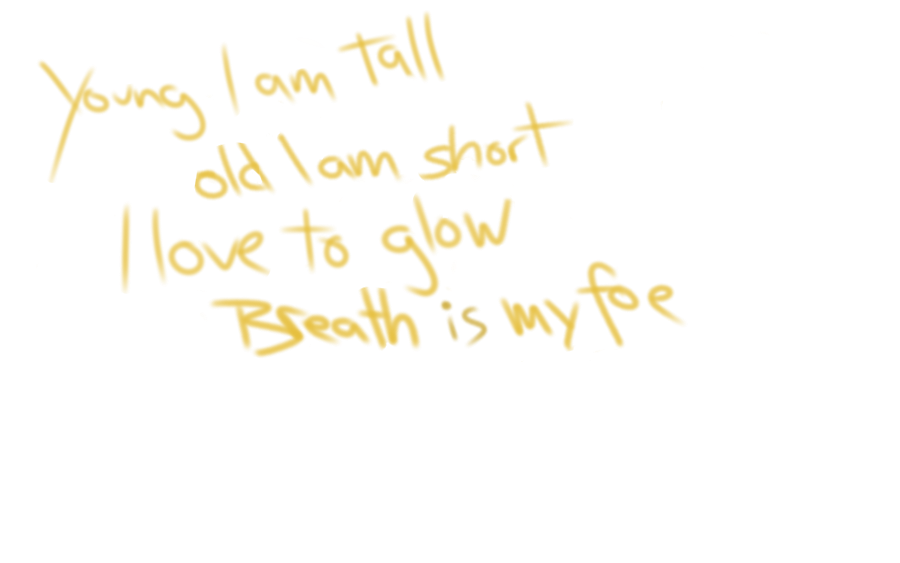 Young I am tall
old I am short
I love to glow
Breath is my foe